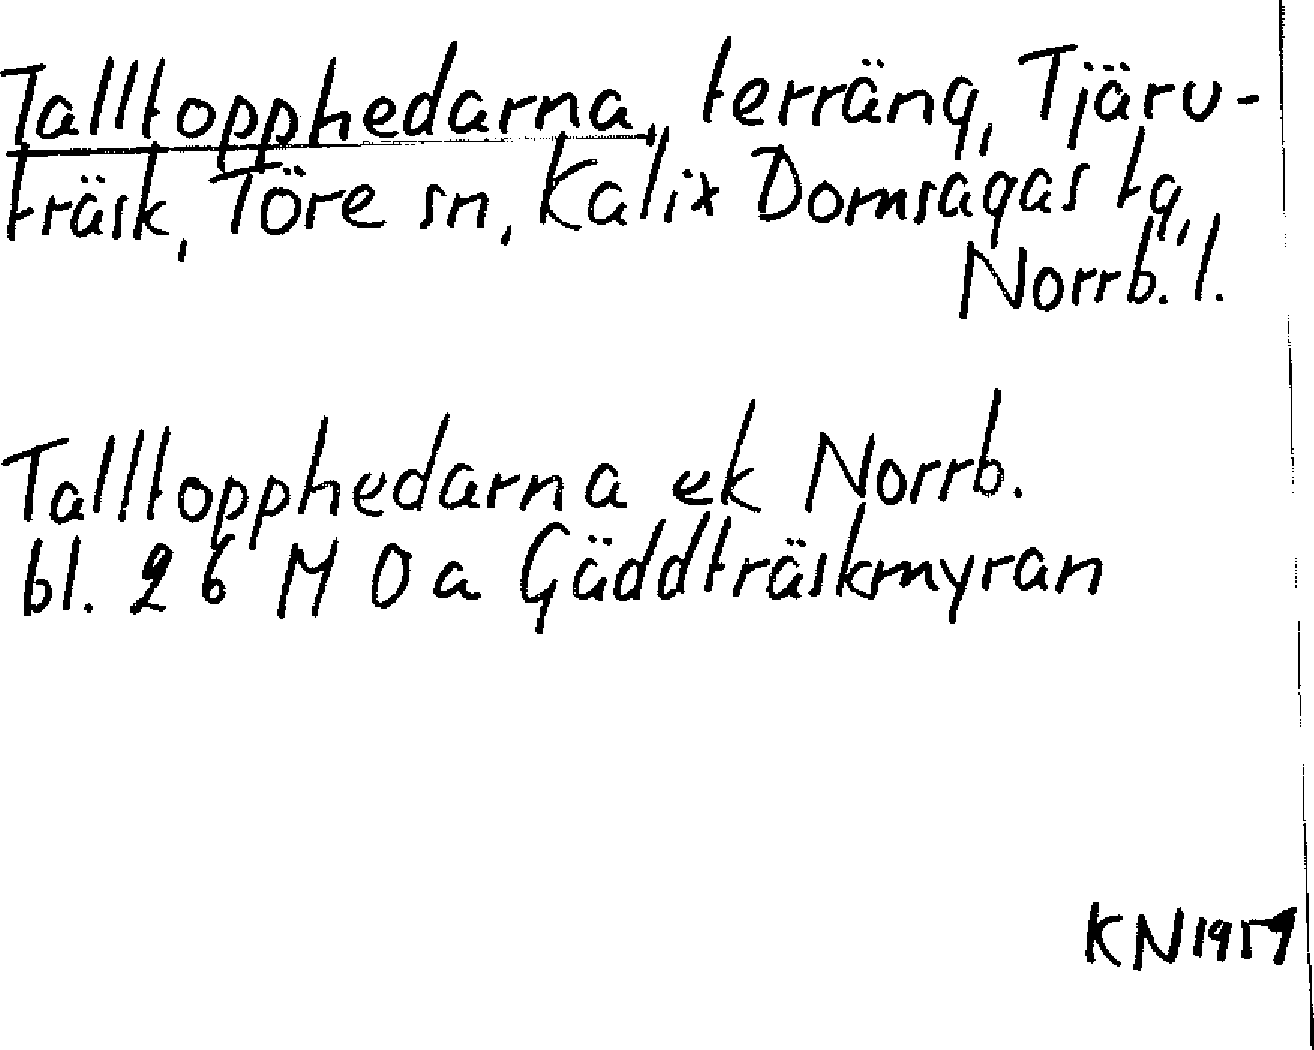 Talltopphedarna, terräng, Tjäru-
träsk, Töre sn, Kalix Domsagas tg,
Norrb. l.
Talltopphedarna ek Norrb.
bl. 26 M 0a Gäddträskmyran
KN 1959